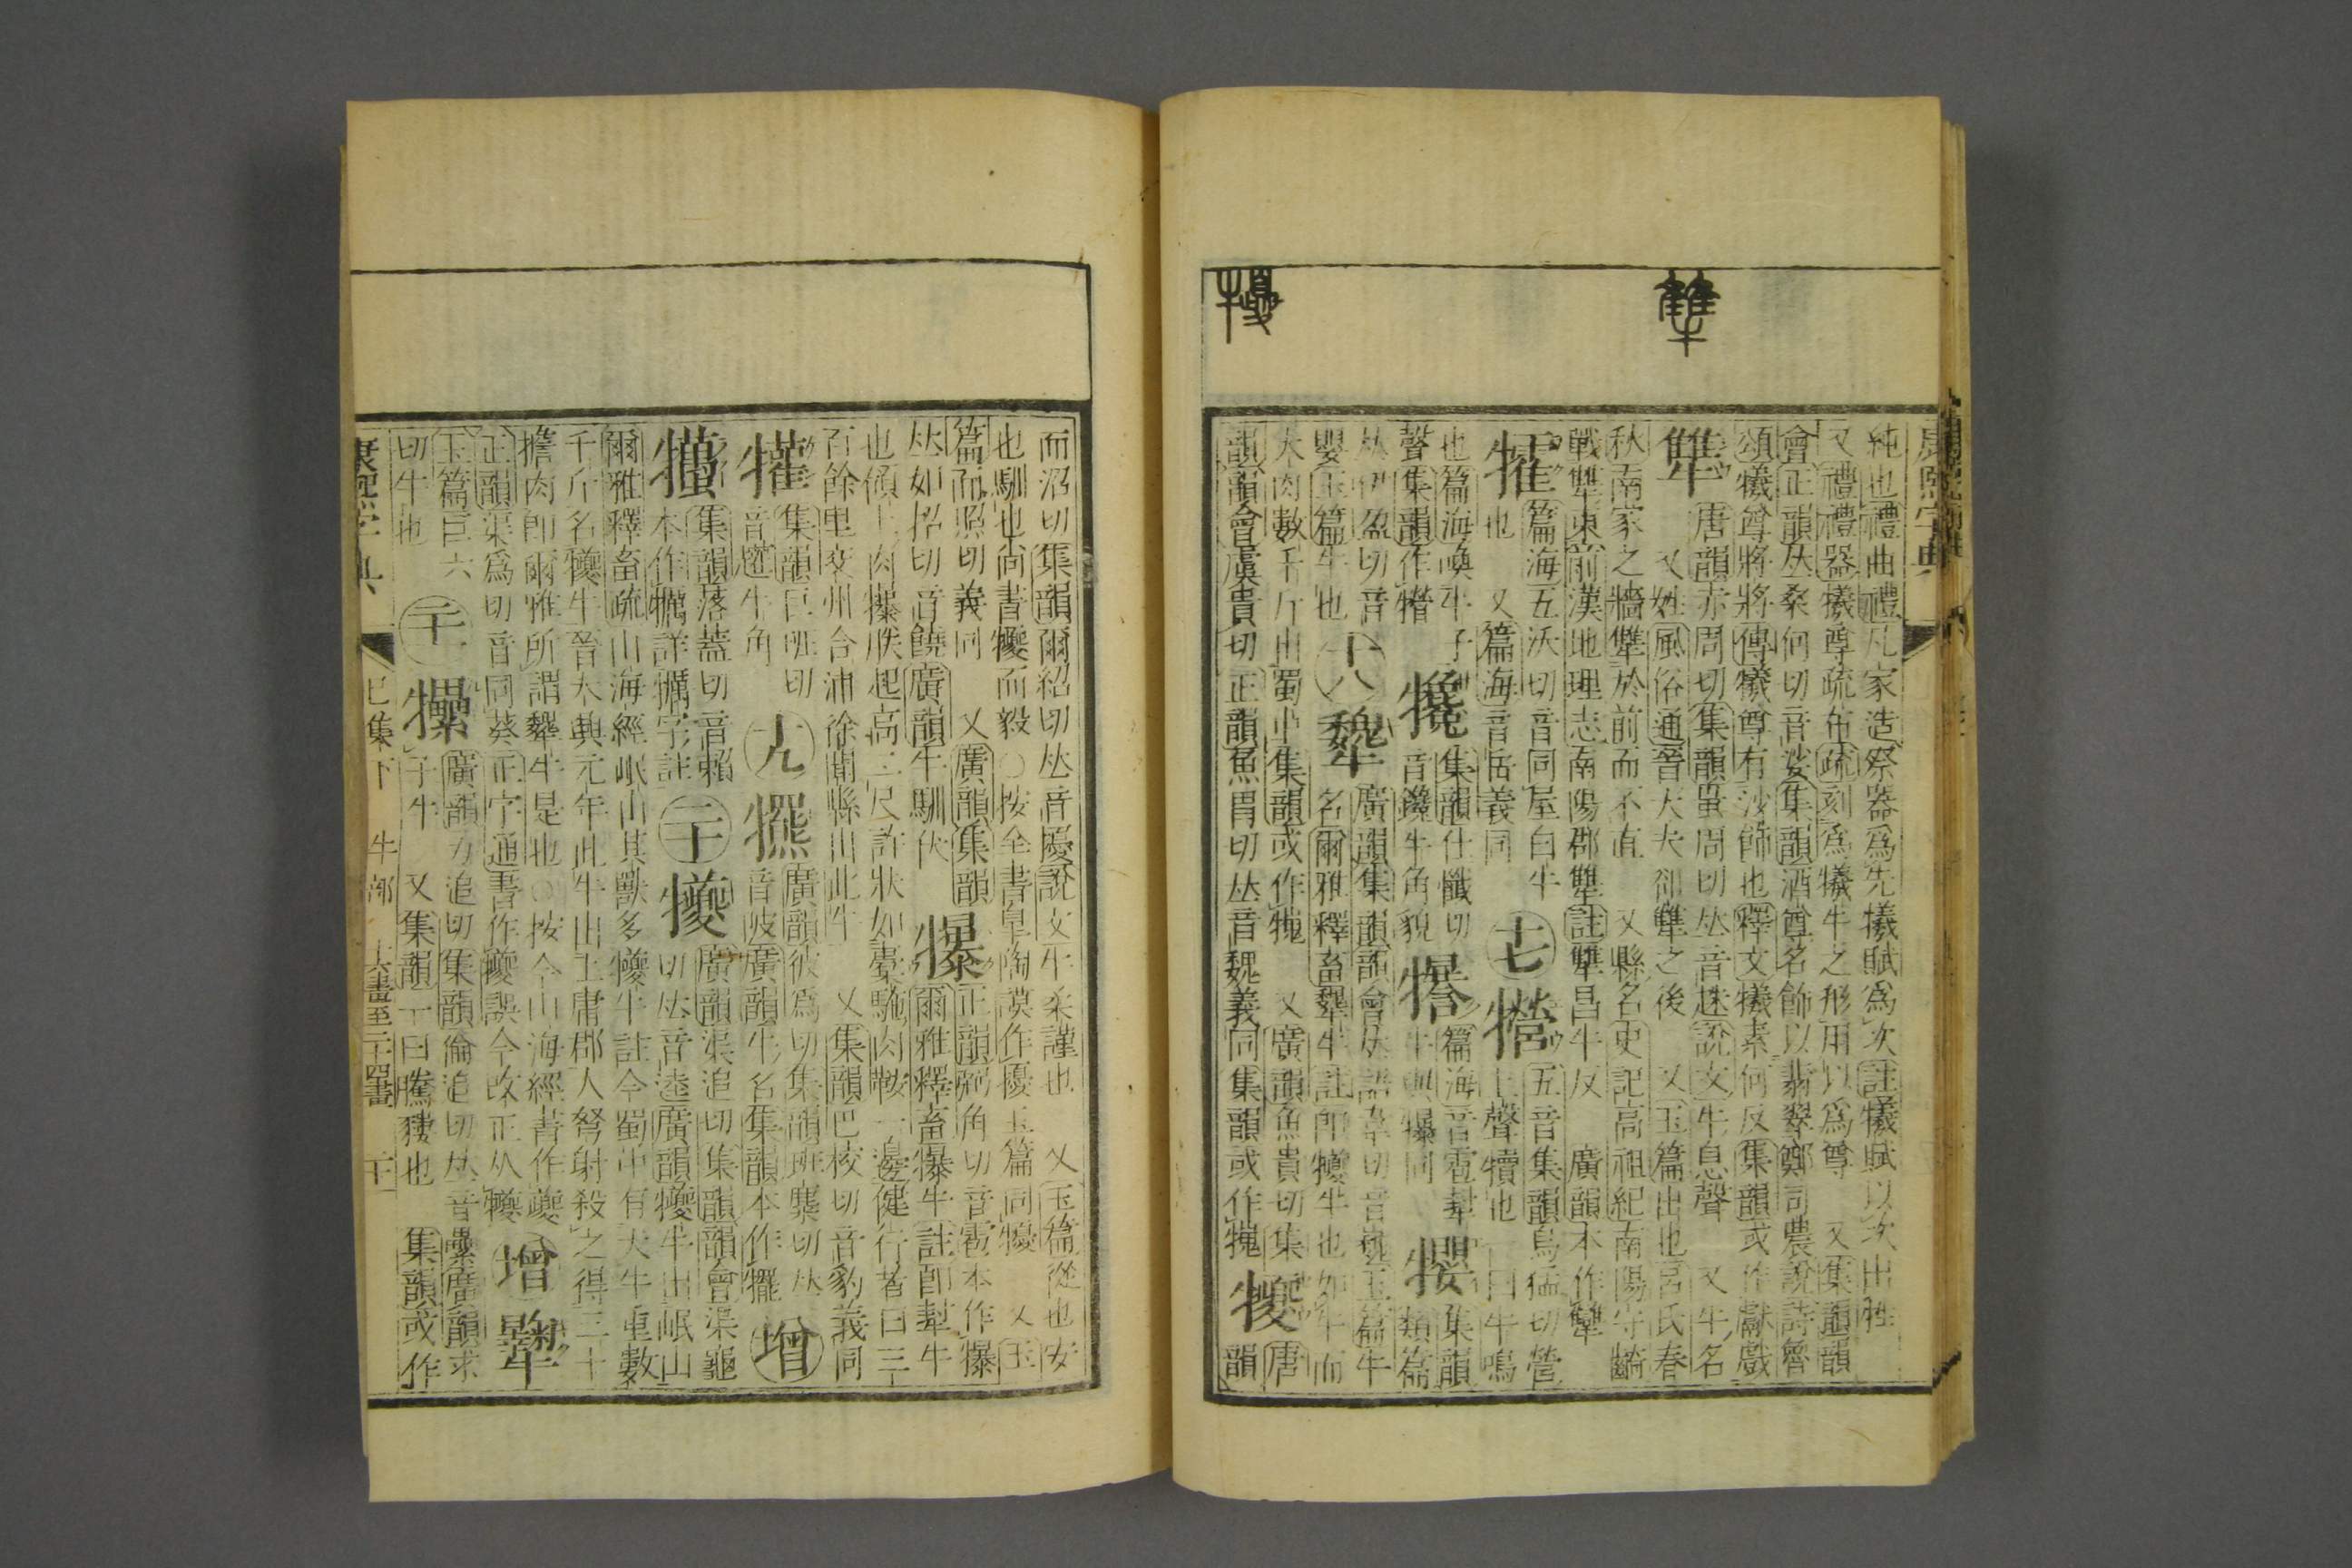 康熙字典
純也禮曲禮凡家造祭器爲先犧賦爲次註犧賦以次出牲
又禮禮器犧尊疏布疏刻爲犧牛之形用以爲尊 又集韻韻
會正韻𠀤桑何切音娑集韻酒尊名飾以翡翠鄭司農說詩魯
頌犧尊將將傳犧尊有沙飾也釋文犧素何反集韻或作獻戲
犨 唐韻赤周切集韻蚩周切𠀤音 說文牛息聲 又牛名
又姓風俗通晉大夫郤犨之後 又玉篇出也呂氏春
秋南家之牆犨於前而不直 又縣名史記高祖紀南陽守齮
戰犨東前漢地理志南陽郡犨註犨昌牛反 廣韻本作犫
篇海五沃切音同屋白牛 十七 五音集韻烏猛切營
也 又篇海音岳義同 上聲犢也 一曰牛鳴
也篇海喚牛子 集韻仕懺切 篇海音雹犎 集韻
聲集韻作 音鑱牛角貌 牛與犦同 類篇
𠀤伊盈切音 廣韻集韻韻會𠀤語韋切音巍玉篇牛
嬰玉篇牛也 十八 犩 名爾雅釋畜犩牛註卽犪牛也如牛而
大肉數千斤出蜀中集韻或作犣 又廣韻魚貴切集
韻韻會虞貴切正韻魚胃切𠀤音魏義同集韻或作 犪 唐韻
而沼切集韻爾紹切𠀤音擾說文牛柔謹也 又玉篇從也安
也馴也尚書犪而毅○按今書皐陶謨作擾玉篇同 又玉
篇而照切義同 又廣韻集韻 犦 正韻弼角切音雹本作犦
𠀤如招切音饒廣韻牛馴伏 爾雅釋畜犦牛註卽犎牛
也領上肉犦胅起高二尺許狀如橐駞肉鞍一邊健行者日三
百餘里交州合浦徐聞縣出此牛 又集韻巴校切音豹義同
集韻巨班切 十九 犤 廣韻彼爲切集韻班糜切𠀤 增
音 牛角 音陂廣韻牛名集韻本作犤
集韻落蓋切音賴 二十 犪 廣韻渠追切集韻韻會渠龜
本作犡詳犡字註 切𠀤音逵廣韻犪牛出岷山
爾雅釋畜疏山海經岷山其獸多犪牛註今蜀中有大牛重數
千斤名犪牛晉大興元年此牛出上庸郡人弩射殺之得三十
擔肉卽爾雅所謂犩牛是也○按今山海經書作夔
正韻渠爲切音同葵正字通書作犪誤今改正从犪 增
玉篇巨六 廣韻力追切集韻倫追切𠀤音纍廣韻求
切牛也 二十一 子牛 又集韻一曰騰 也 集韻或作
康熙字典 巳集下 牛部 十六畫至二十四畫 二十